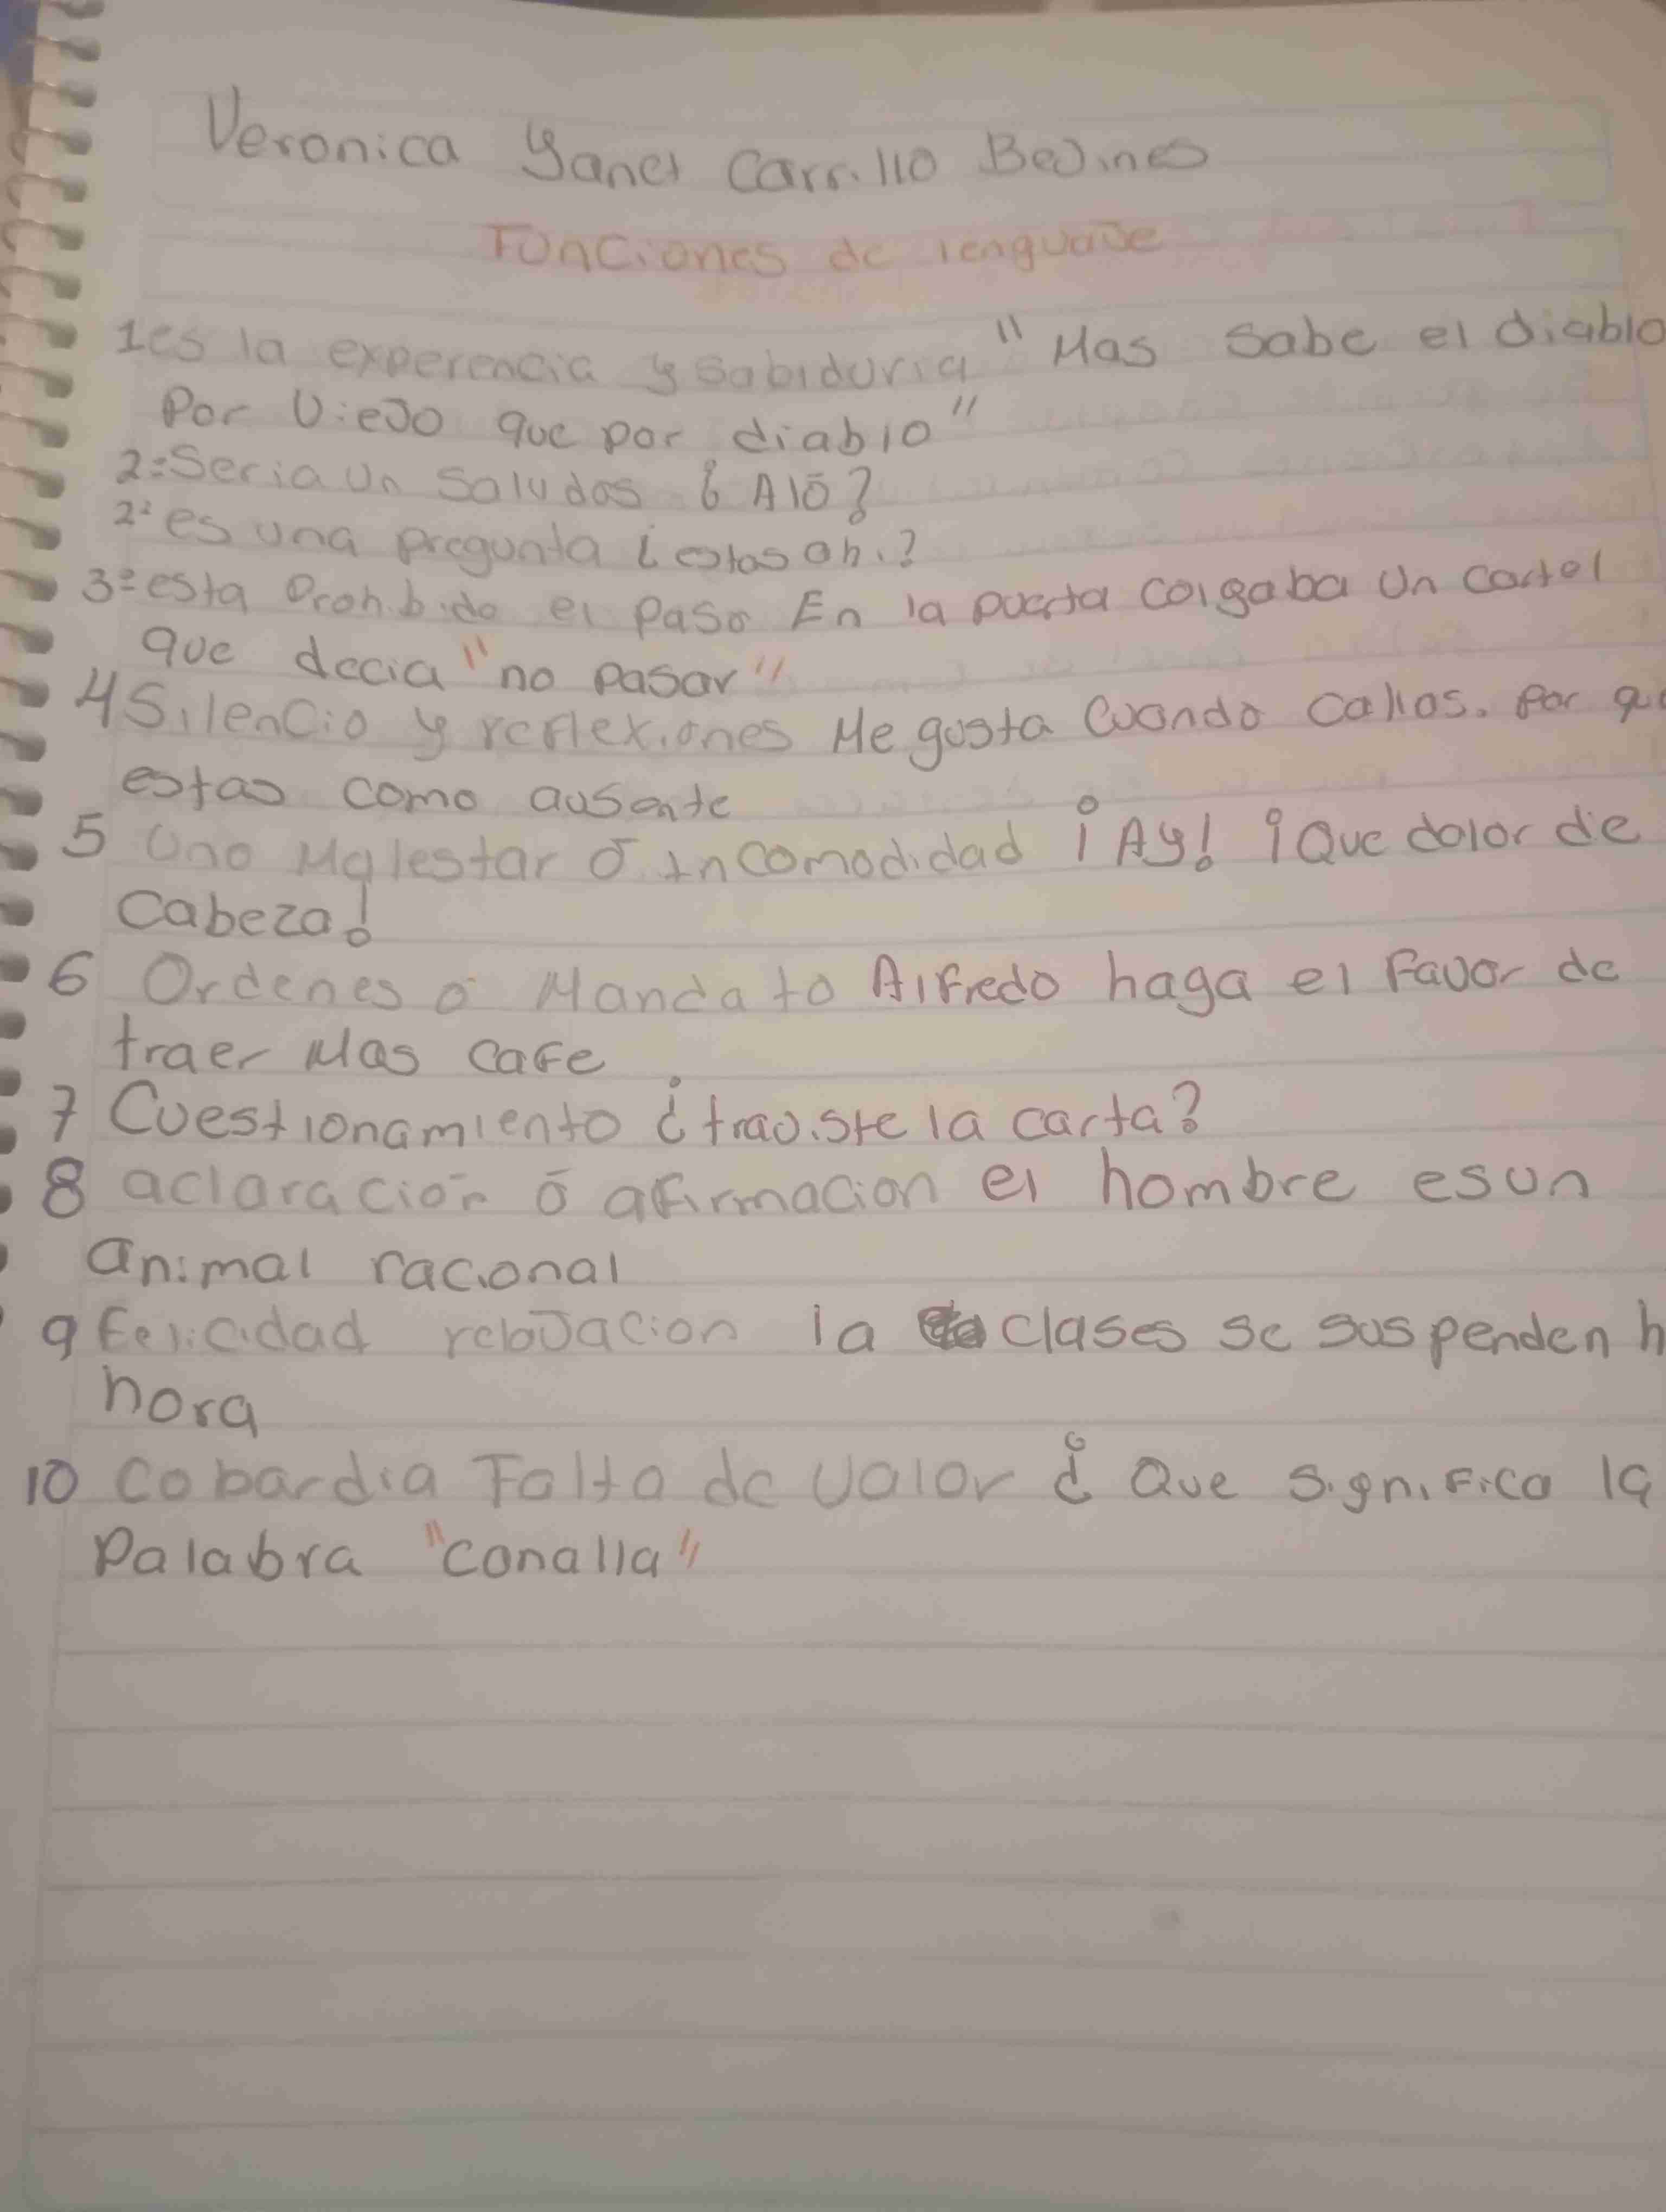 Veronica Yanet Carrillo Bejines
Funciones de lenguaje
1es la experencia y sabiduria "Mas sabe el diablo
Por viejo que por diablo"
2=Seria un saludos ¿Aló?
2² es una pregunta ¿estas ahi?
3=esta Prohibido el paso En la puerta colgaba un cartel
que decia "no pasar"
4 Silencio y reflexiones Me gusta cuando callas. Por que
estas como ausente
5 Uno Malestar ó incomodidad ¡Ay! ¡Que dolor de
cabeza!
6 Ordenes o Mandato Alfredo haga el Favor de
traer Mas cafe
7 Cuestionamiento ¿trajiste la carta?
8 aclaración ó afirmacion el hombre es un
animal racional
9 felicidad relajacion la clases se suspenden h
hora
10 Cobardia Falta de valor ¿Que significa la
Palabra "canalla"